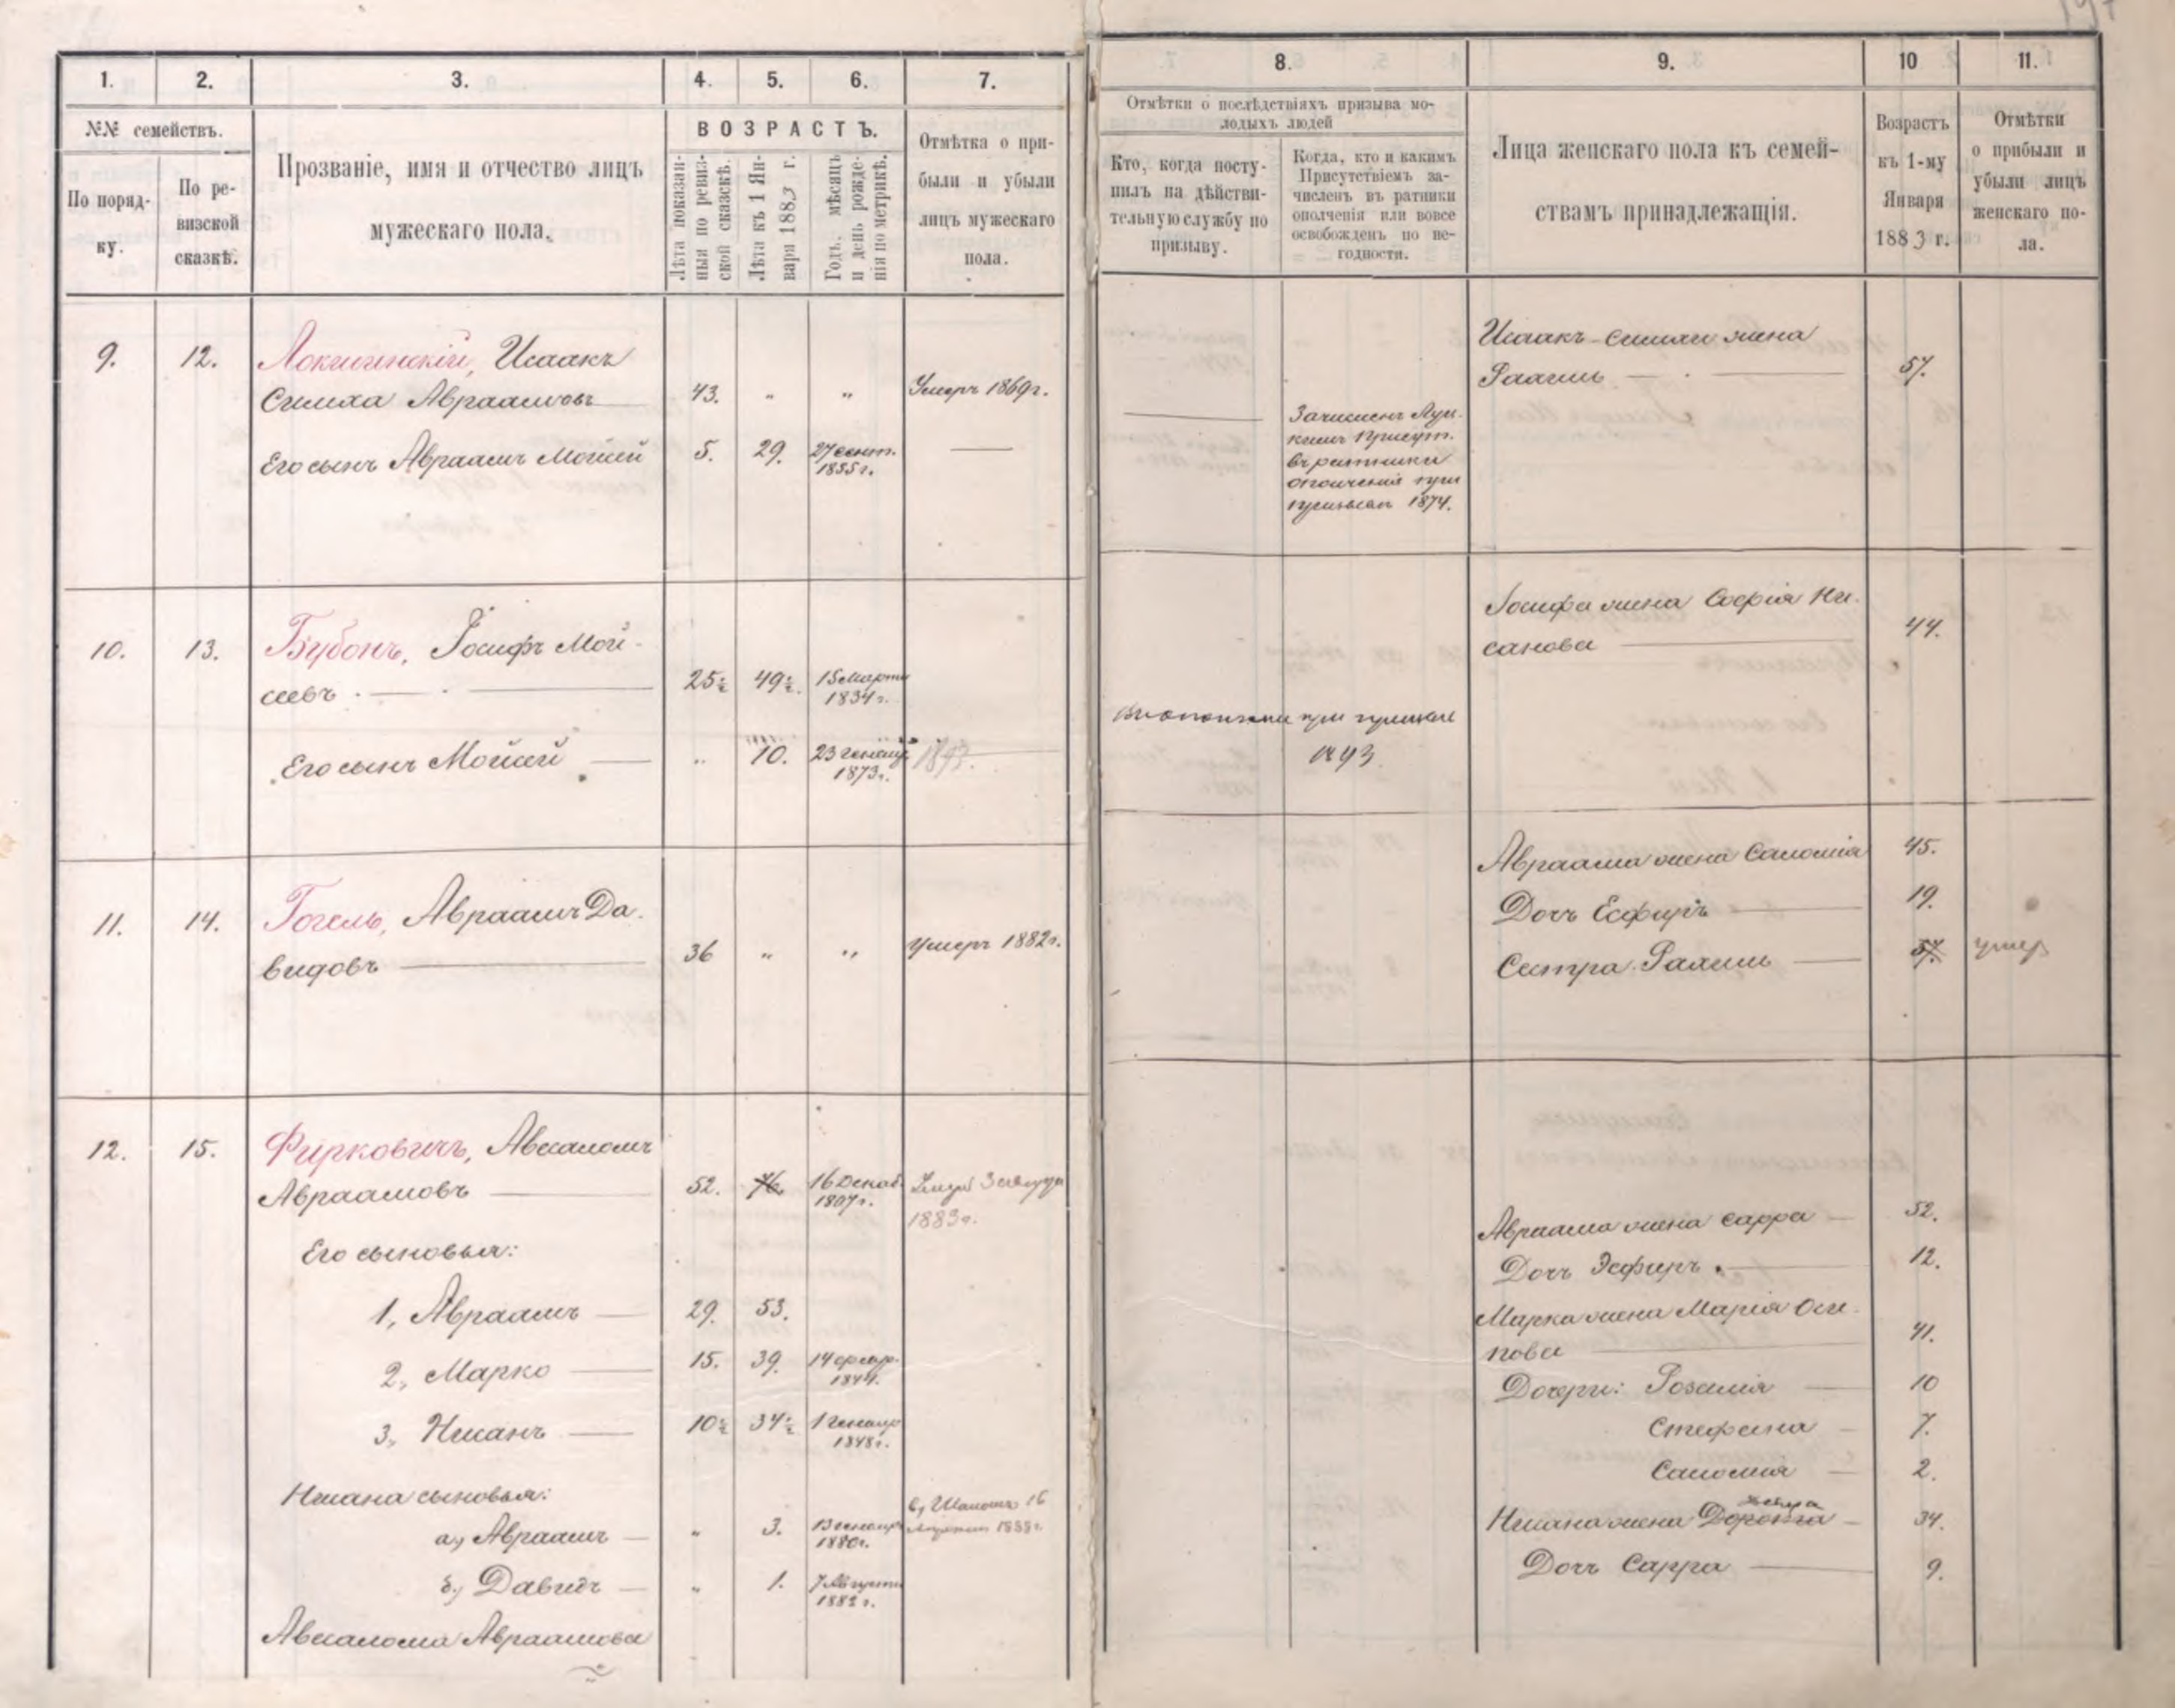 1.
2.
3.
4.
5.
6.
7.
№№ семействъ.
По поряд-
ку.
По ре-
визской
сказкѣ.
Прозваніе, имя и отчество лицъ
мужескаго пола.
ВОЗРАСТЪ.
Лѣта показан-
ныя по ревиз-
ской сказкѣ.
Лѣта къ 1 Ян-
варя 1883 г.
Годъ, мѣсяцъ
и день рожде-
нія по метрикѣ.
Отмѣтка о при-
были и убыли
лицъ мужескаго
пола.
9.
12.
Локшинскій, Исаакъ
Симха Авраамовъ
43. " "
Умеръ 1869 г.
Его сынъ Авраамъ Мойсей
5. 29. 27 сент.
1855 г.
10.
13.
Бубонъ, Іосифъ Мой-
сеевъ
25½ 49½. 15 марта
1834 г.
Его сынъ Мойсей
" 10. 23 генвар.
1873 г.
1893.
11.
14.
Гогель, Авраамъ Да-
видовъ
36 " "
Умеръ 1882 г.
12.
15.
Фирковичъ, Авесаломъ
Авраамовъ
52. 76 16 Декаб.
1807 г.
1883 г.
Его сыновья:
1, Авраамъ 29. 53.
2, Марко 15. 39. 14 февр.
1844.
3, Нисанъ 10½ 34½ 1 генвар.
1848 г.
Нисана сыновья:
а, Авраамъ " 3. 13 генвар.
1880 г.
б, Давидъ " 1. 7 Августа
1882 г.
Авесалома Авраамова
8.
9.
10
11.
Отмѣтки о послѣдствіяхъ призыва мо-
лодыхъ людей
Кто, когда посту-
пилъ на дѣйстви-
тельную службу по
призыву.
Когда, кто и какимъ
Присутствіемъ за-
численъ въ ратники
ополченія или вовсе
освобожденъ по не-
годности.
Лица женскаго пола къ семей-
ствамъ принадлежащія.
Возрастъ
къ 1-му
Января
1883 г.
Отмѣтки
о прибыли и
убыли лицъ
женскаго по-
ла.
Зачисленъ Луц-
кимъ Присут.
въ ратники
ополченія при
призывѣ 1874.
Исаакъ-Симхи жена
Рахиль 57.
Іосифа жена Софія Ни-
санова 44.
при призывѣ
1893
Авраама жена Саломія 45.
Дочь Есфирь 19.
Сестра Рахиль 57. умер
Авраама жена Сарра 52.
Дочь Эсфирь 12.
Марка жена Марія Оси-
пова 41.
Дочери: Розалія 10
Стефанія 7.
Саломія 2.
Нисана жена Доротта 34.
Дочь Сарра 9.